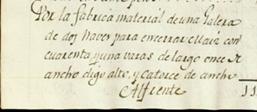 Por la fabrica material de una Galera
de dos Naves para encerrar Maiz con
cuarenta y una varas de largo once de
ancho digo alto, y catorce de ancho
Al frente 11